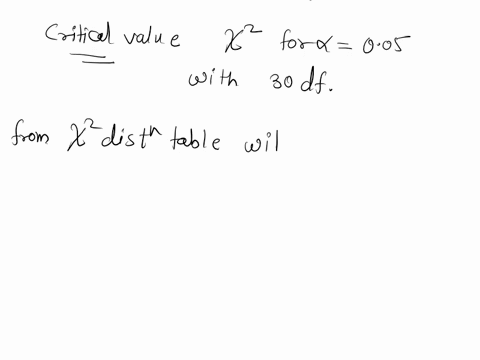 Critical value χ² for α = 0.05
with 30 df.
from χ² distⁿ table wil